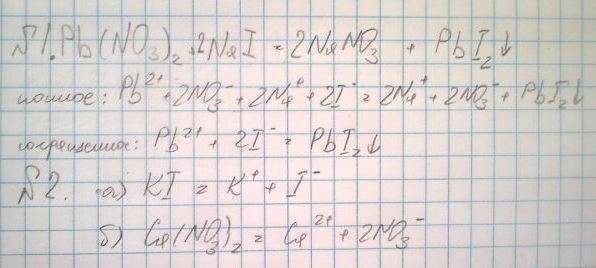 №1. Pb(NO₃)₂ + 2NaI = 2NaNO₃ + PbI₂↓
полное: Pb²⁺ + 2NO₃⁻ + 2Na⁺ + 2I⁻ = 2Na⁺ + 2NO₃⁻ + PbI₂↓
сокращенное: Pb²⁺ + 2I⁻ = PbI₂↓
№2. а) KI = K⁺ + I⁻
б) Ca(NO₃)₂ = Ca²⁺ + 2NO₃⁻